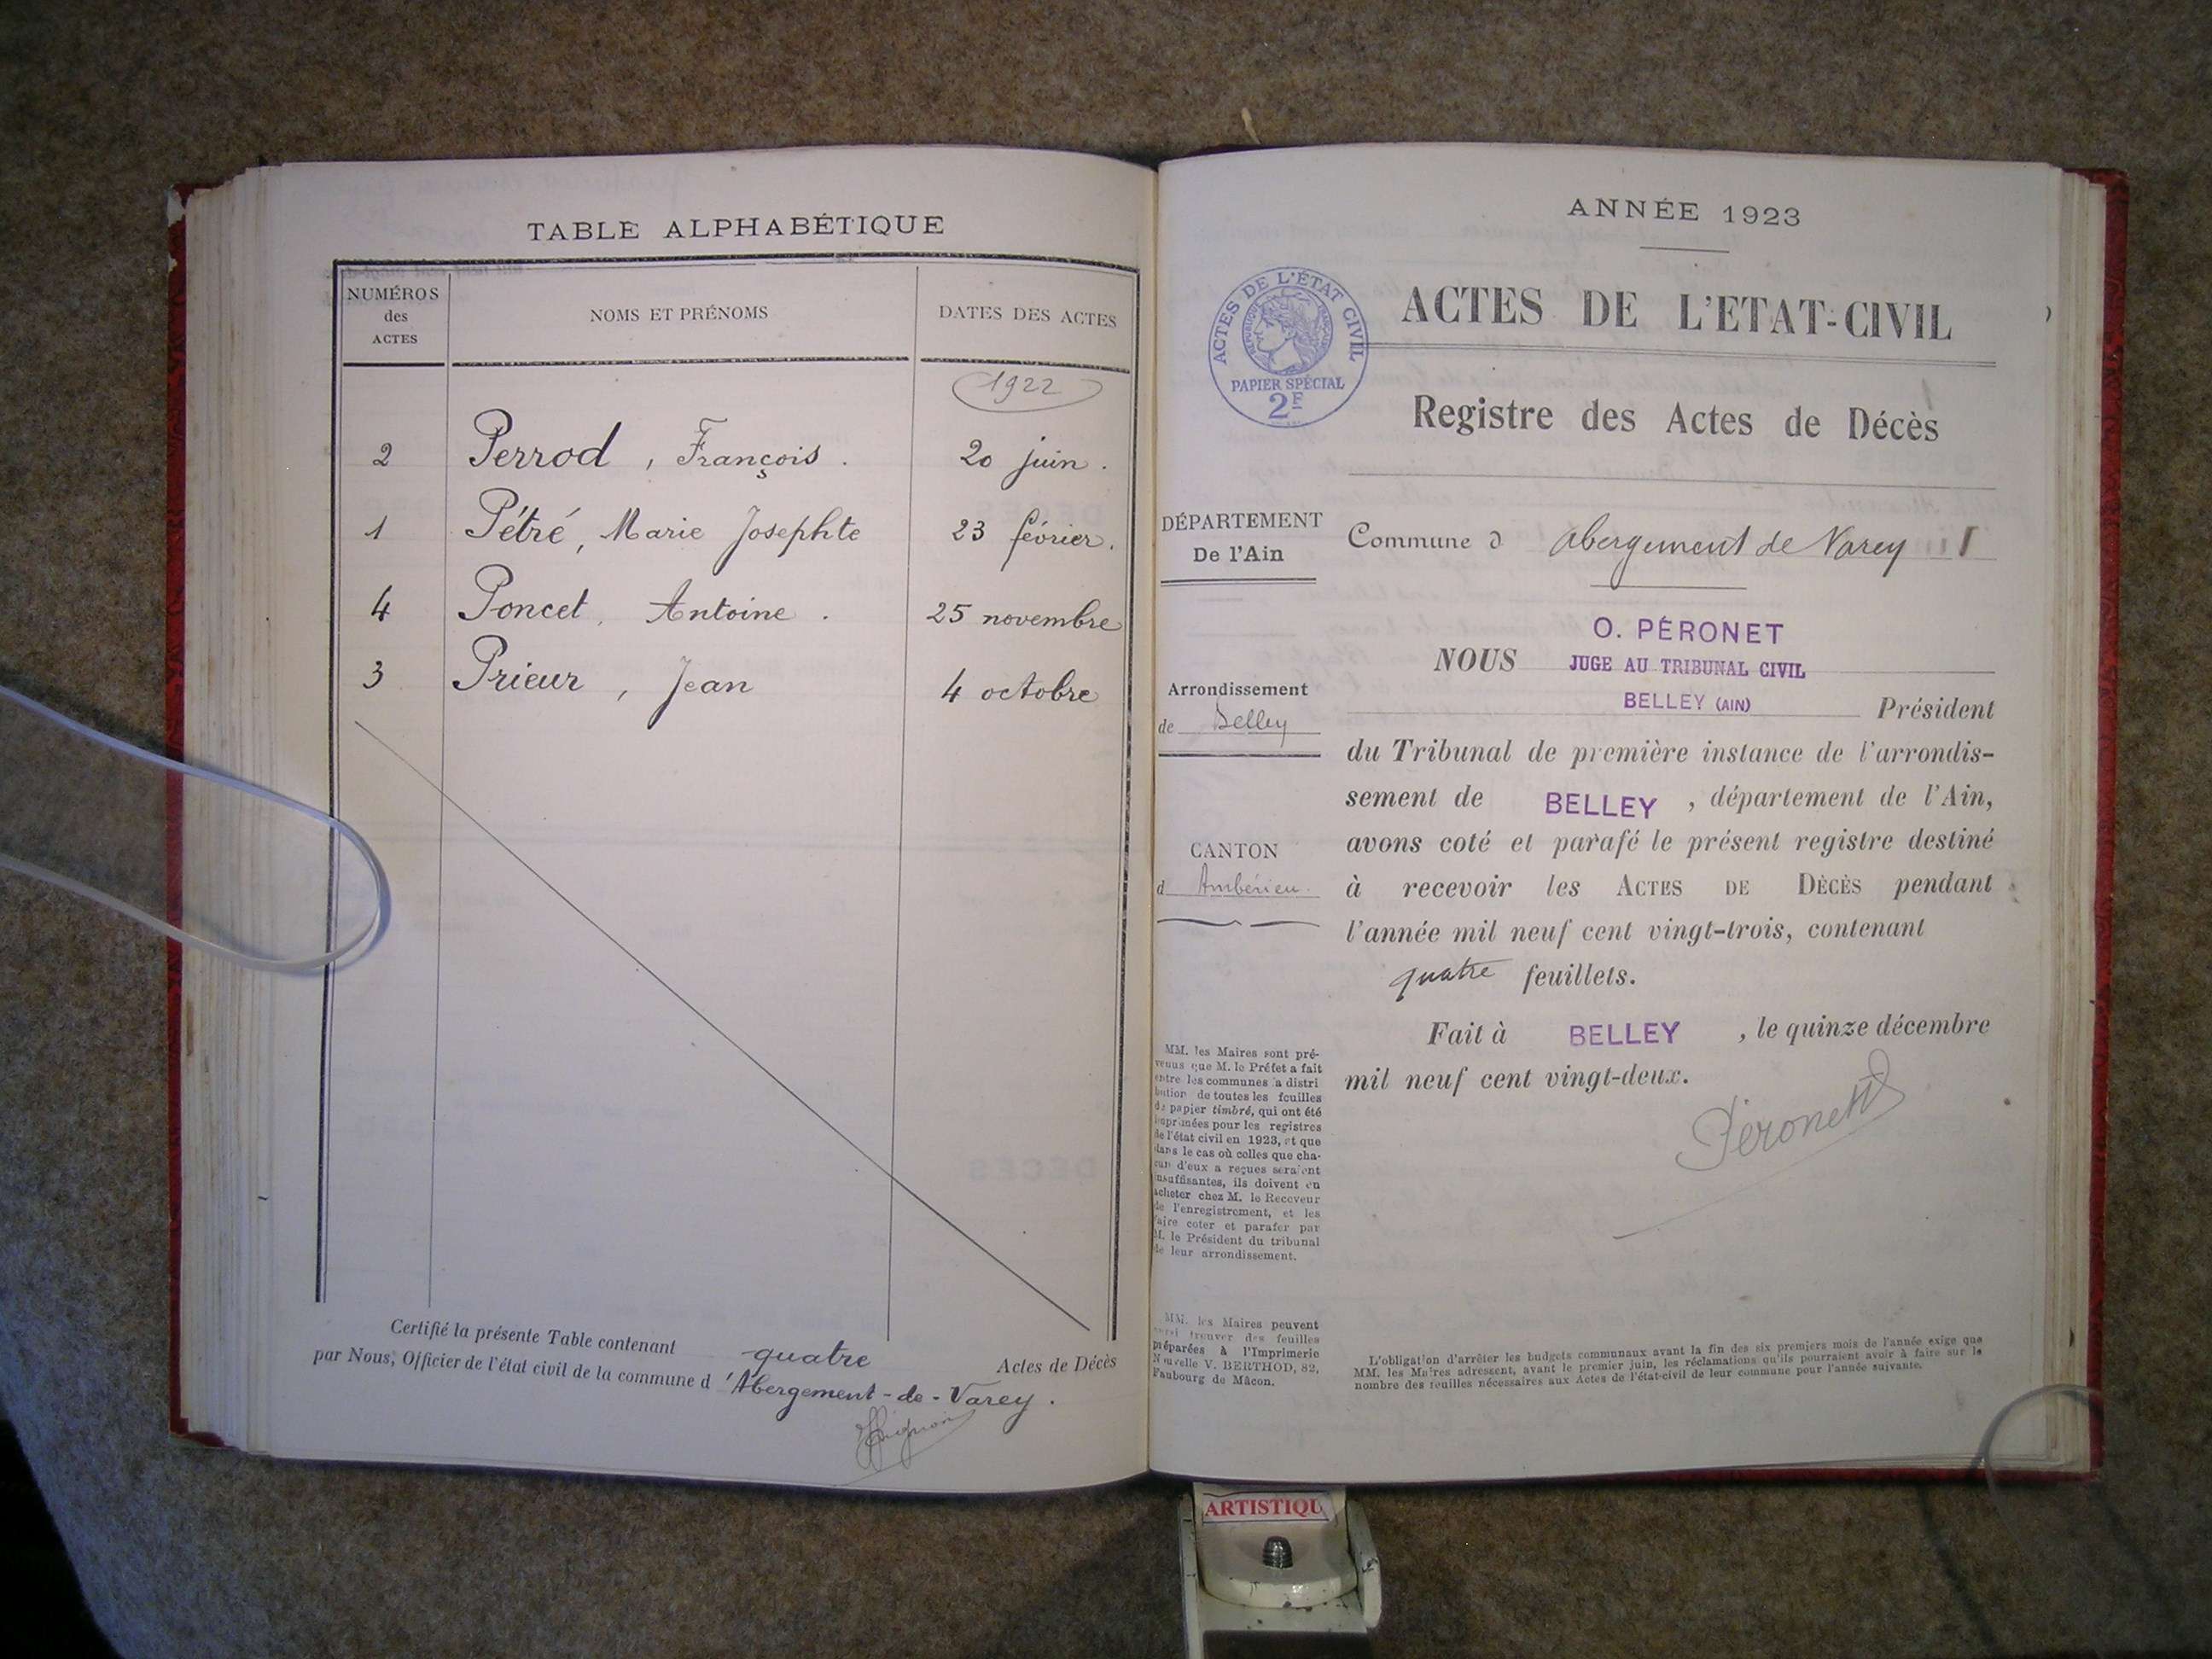 TABLE ALPHABÉTIQUE
NUMÉROS des ACTES
NOMS ET PRÉNOMS
DATES DES ACTES
1922
2 Perrod, François. 20 juin.
1 Pétré, Marie Josephte 23 février.
4 Poncet, Antoine. 25 novembre
3 Prieur, Jean 4 octobre
Certifié la présente Table contenant quatre Actes de Décès
par Nous, Officier de l'état civil de la commune d'Abergement-de-Varey.
ANNÉE 1923
ACTES DE L'ÉTAT CIVIL
RÉPUBLIQUE FRANÇAISE
PAPIER SPÉCIAL
2F
ACTES DE L'ETAT-CIVIL
Registre des Actes de Décès
DÉPARTEMENT
De l'Ain
Arrondissement
de Belley
CANTON
d Ambérieu.
MM. les Maires sont pré-
venus que M. le Préfet a fait
entre les communes la distri
bution de toutes les feuilles
de papier timbré, qui ont été
imprimées pour les registres
de l'état civil en 1923, et que
dans le cas où celles que cha-
cun d'eux a reçues seraient
insuffisantes, ils doivent en
acheter chez M. le Receveur
de l'enregistrement, et les
faire coter et parafer par
M. le Président du tribunal
de leur arrondissement.
MM. les Maires peuvent
aussi trouver des feuilles
préparées à l'Imprimerie
Nouvelle V. BERTHOD, 82,
Faubourg de Mâcon.
Commune d Abergement de Varey
O. PÉRONET
NOUS JUGE AU TRIBUNAL CIVIL
BELLEY (AIN) Président
du Tribunal de première instance de l'arrondis-
sement de BELLEY, département de l'Ain,
avons coté et parafé le présent registre destiné
à recevoir les ACTES DE DÉCÈS pendant
l'année mil neuf cent vingt-trois, contenant
quatre feuillets.
Fait à BELLEY, le quinze décembre
mil neuf cent vingt-deux.
Péronet
L'obligation d'arrêter les budgets communaux avant la fin des six premiers mois de l'année exige que
MM. les Maires adressent, avant le premier juin, les réclamations qu'ils pourraient avoir à faire sur le
nombre des feuilles nécessaires aux Actes de l'état-civil de leur commune pour l'année suivante.
ARTISTIQU